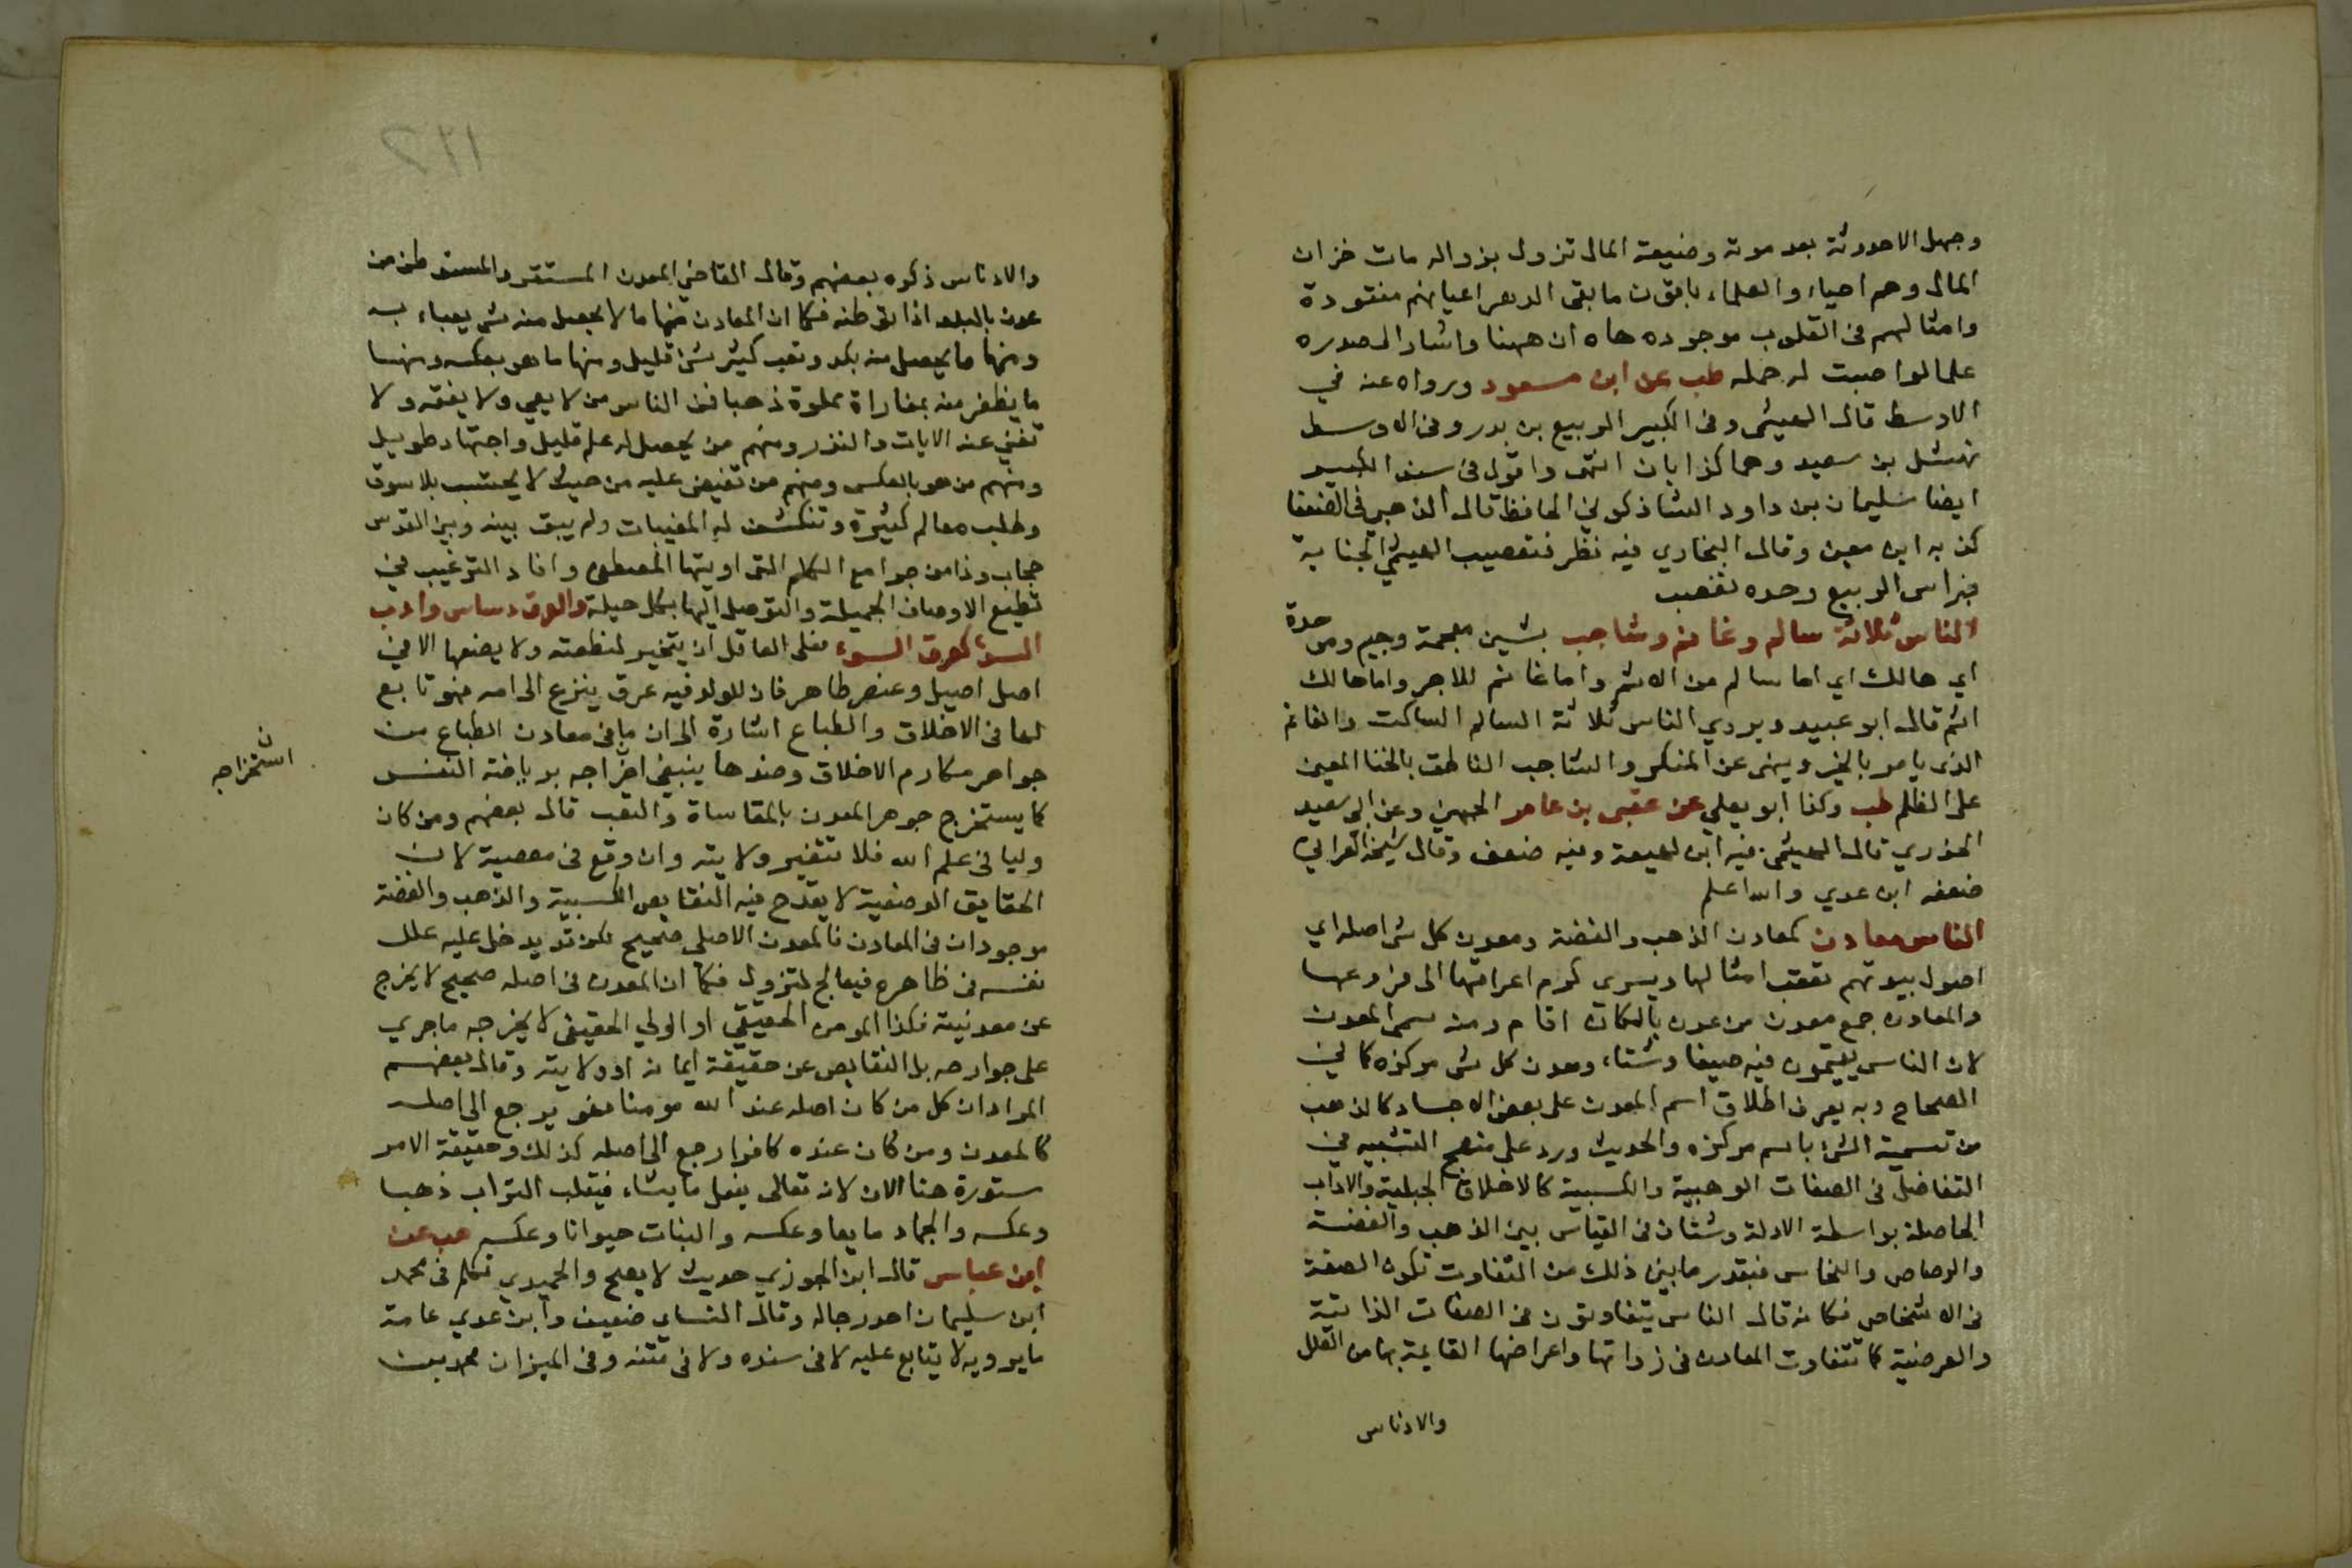 وجهل الاحدوثة بعد موته وصنيعة المال تزول بزواله مات خزان
المال وهم احياء والعلماء باقون ما بقى الدهر اعيانهم مفقودة
وامثالهم في القلوب موجوده هاه ان ههنا واشار الى صدره
علما لو اصبت له حمله طب عن ابن مسعود ورواه عنه في
الاوسط قال الهيثمى وفى الكبير الربيع بن بدر وفى الاوسط
نهشل بن سعيد وهما كذابان انتهى واقول في سند الكبير
ايضا سليمان بن داود الشاذكوني الحافظ قال الذهبى فى الضعفا
كذبه ابن معين وقال البخاري فيه نظر فتعصيب الهيثمي الجناية
براس الربيع وحده تعصب
الناس ثلاثة سالم وغانم وشاجب بشين معجمة وجيم وموحدة
اي هالك اي اما سالم من الاثم واما غانم للاجر واما هالك
اثم قال ابو عبيد ويروي الناس ثلاثة السالم الساكت والغانم
الذى يامر بالخير وينهى عن المنكر والشاجب الناطق بالخنا المعين
على الظلم طب وكذا ابو يعلي عن عقبى بن عامر الجهني وعن ابى سعيد
الخدري قال الهيثمى فيه ابن لهيعة وفيه ضعف وقال شيخه العراقي
ضعفه ابن عدي والله اعلم
الناس معادن كمعادن الذهب والفضة ومعدن كل شى اصله اي
اصول بيوتهم تعقب امثالها ويسرى كرم اعراقها الى فروعها
والمعادن جمع معدن من عدن بالمكان اقام ومنه سمى المعدن
لان الناس يقيمون فيه صيفا وشتاء ومعدن كل شى مركزه كما في
الصحاح وبه يعرف اطلاق اسم المعدن على بعض الاجساد كالذهب
من تسمية الشئ باسم مركزه والحديث ورد على منهج التشبيه في
التفاضل في الصفات الوهبية والكسبية كالاخلاق الجبلية والاداب
الحاصلة بواسطة الادلة وشتان في القياس بين الذهب والفضة
والرصاص والنحاس فبقدر ما بين ذلك من التفاوت تكون الصفة
في الاشخاص فكانه قال الناس يتفاوتون في الصفات الذاتية
والعرضية كما تتفاوت المعادن في ذواتها واعراضها القايمة بها من العلل
والادناس
والادناس ذكره بعضهم وقال القاضي المعدن المستقر والمستوطن من
عدن بالبلد اذا توطنه فكما ان المعادن منها ما لا يحصل منه شى يعباء به
ومنها ما يحصل منه بكد وتعب كثير شئ قليل ومنها ما هو بعكسه ومنها
ما يظفر منه بمغاراة مملوة ذهبا فمن الناس من لا يعي ولا يفقه ولا
تغني عنه الايات والنذر ومنهم من يحصل له علم قليل واجتهاد طويل
ومنهم من هو بالعكس ومنهم من تفيض عليه من حيث لا يحتسب بلا سوق
وطلب معالم كثيرة وتنكشف له المغيبات ولم يبق بينه وبين القدس
حجاب وذا من جوامع الكلم التى اوتيها المصطفى وافاد الترغيب في
تطبع الاوصاف الجميلة والتوصل اليها بكل حيلة والعرق دساس وادب
السوء كعرق السوء فعلى العاقل ان يتخير لنطفته ولا يضعها الا في
اصل اصيل وعنصر طاهر فان للولد فيه عرق ينزع الى امه فهو تابع
لها في الاخلاق والطباع اشارة الى ان ما في معادن الطباع من
جواهر مكارم الاخلاق وضدها ينبغي اخراجه برياضة النفس
استخراجه ن
كما يستخرج جوهر المعدن بالمقاساة والتعب قال بعضهم ومن كان
وليا في علم الله فلا تتغير ولايته وان وقع في معصية لان
الحقايق الوضعية لا يقدح فيه النقايص الكسبية والذهب والفضة
موجودان في المعادن فالمعدن الاصلي صحيح لكن قد يدخل عليه علل
نفسه في ظاهره فيعالج لتزول فكما ان المعدن في اصله صحيح لا يخرج
عن معدنيته فكذا المومن الحقيقي او الولي الحقيقى لا يخرجه ما جرى
على جوارحه بل النقايص عن حقيقة ايمانه او ولايته وقال بعضهم
المراد ان كل من كان اصله عند الله مومنا فهو يرجع الى اصله
كالمعدن ومن كان عنده كافرا رجع الى اصله كذلك وحقيقة الامر
ستورة هنا الان لانه تعالى يفعل ما يشاء فيقلب التراب ذهبا
وعكسه والجماد مايعا وعكسه والنبات حيوانا وعكسه هب عن
ابن عباس قال ابن الجوزي حديث لا يصح والحميدي تكلم في محمد
ابن سليمان احد رجاله وقال النساي ضعيف وابن عدي عامة
ما يرويه لا يتابع عليه لا في سنده ولا في متنه وفى الميزان محمد بن